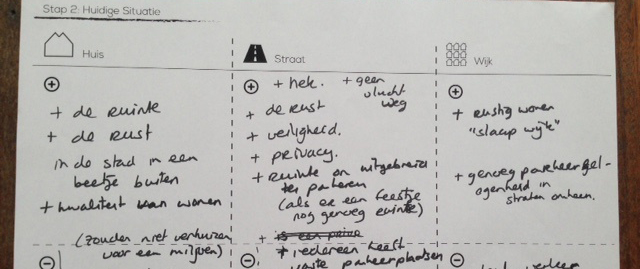 Stap 2: Huidige Situatie
Huis
+ de ruimte
+ de rust
in de stad in een
beetje buiten
+ kwaliteit van wonen
(zouden niet verhuizen
voor een miljoen)
Straat
+ hek. + geen
vlucht
weg
+ de rust
+ veiligheid.
+ privacy.
+ ruimte om uitgebreid
te parkeren
(als er een feestje
nog genoeg ruimte)
+ iedereen heeft
vaste parkeerplaatsen
Wijk
+ rustig wonen
"slaap wijk"
+ genoeg parkeergel-
egenheid in
straten omheen.